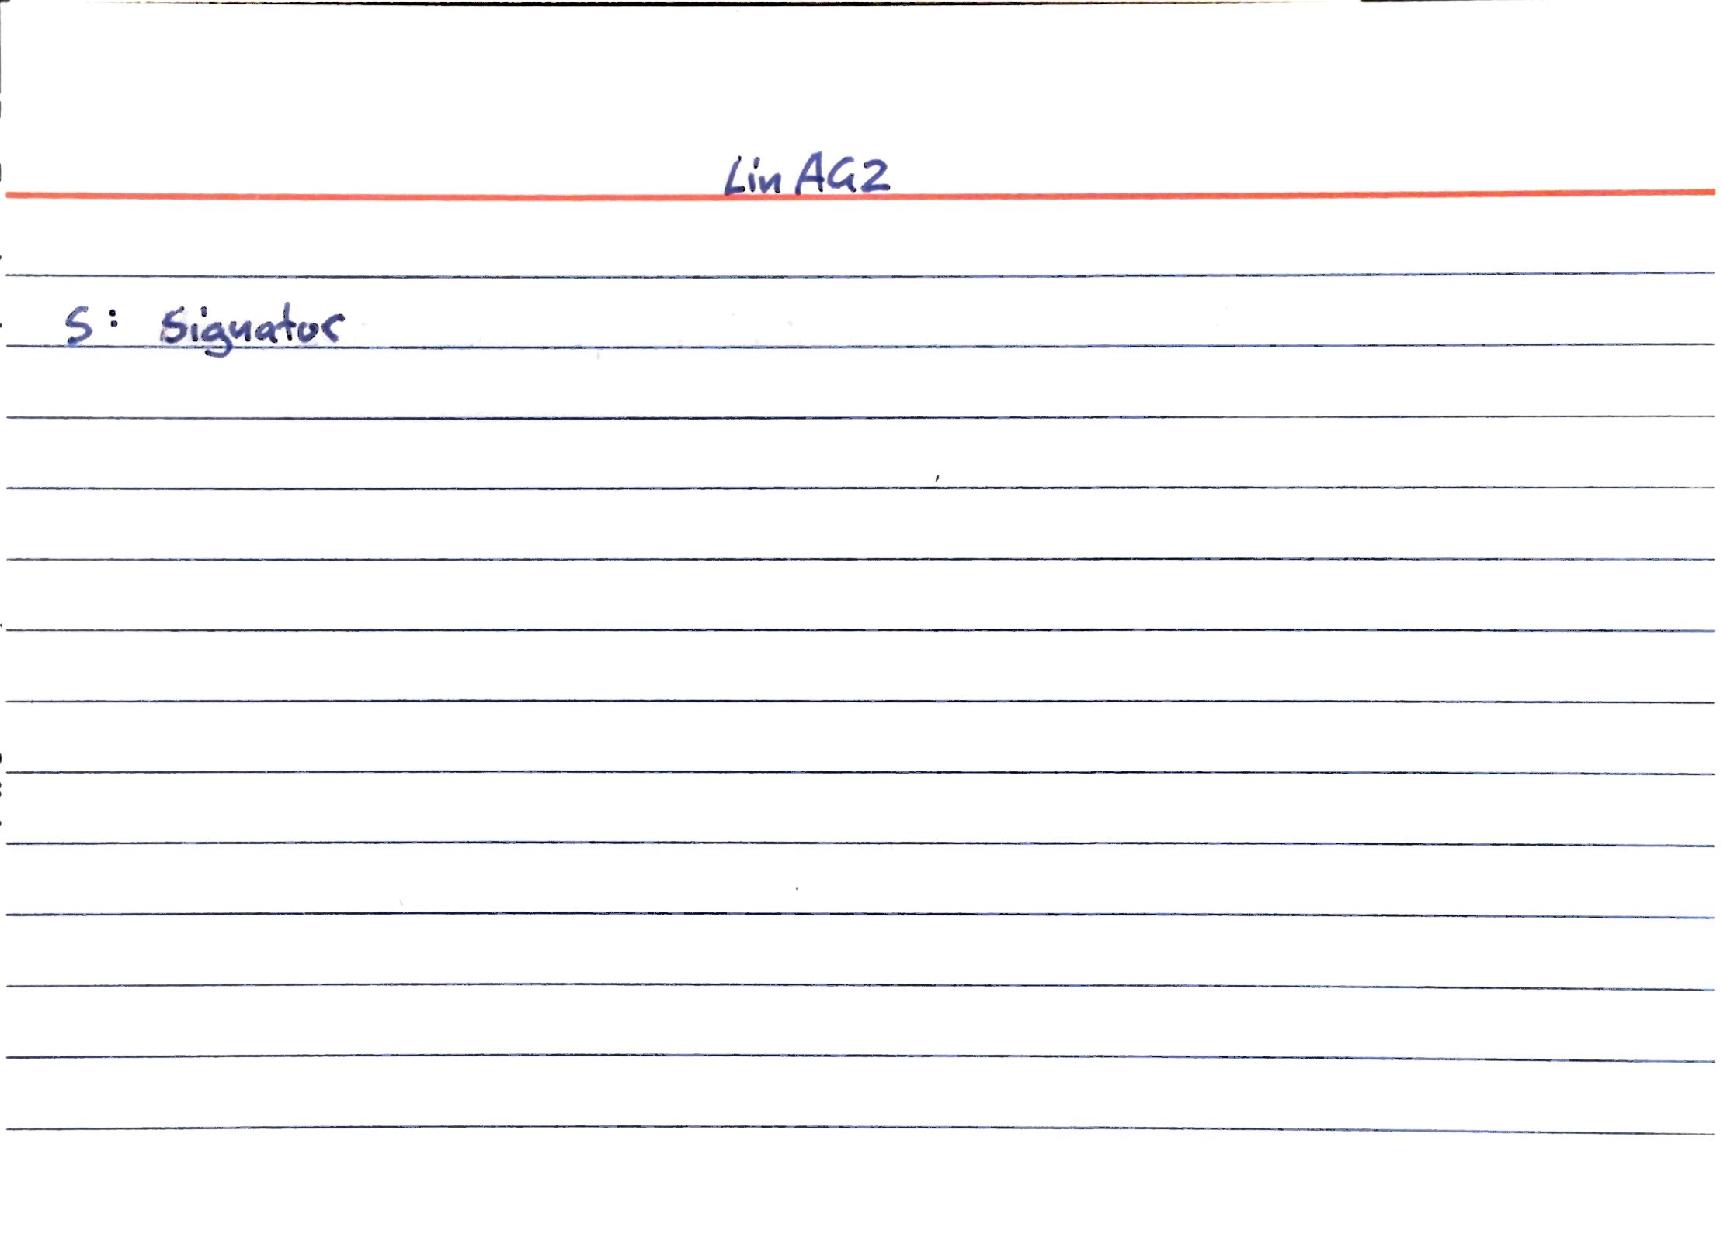 Lin AG2
S: Signator